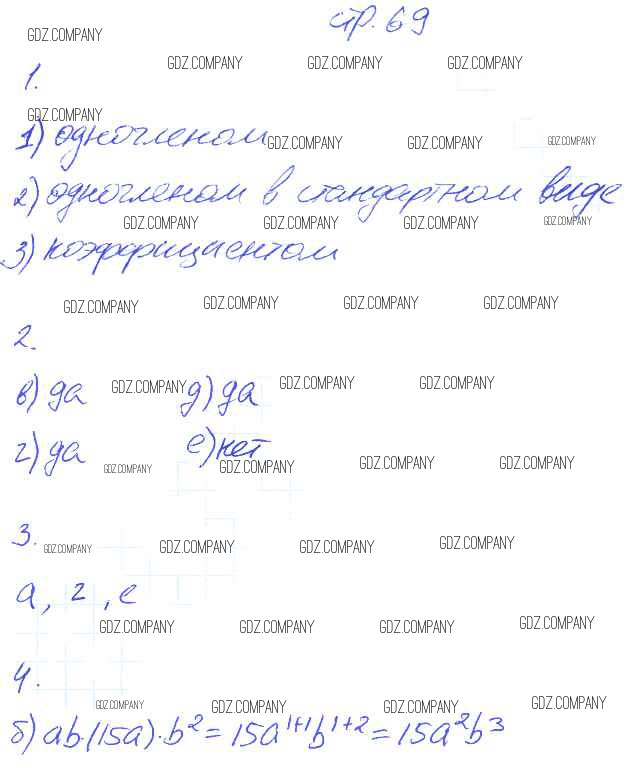 стр. 69
GDZ.COMPANY
GDZ.COMPANY GDZ.COMPANY GDZ.COMPANY
1.
GDZ.COMPANY
1) одночленом
GDZ.COMPANY GDZ.COMPANY GDZ.COMPANY
2) одночленом в стандартном виде
GDZ.COMPANY GDZ.COMPANY GDZ.COMPANY GDZ.COMPANY
3) коэффициентом
GDZ.COMPANY GDZ.COMPANY GDZ.COMPANY GDZ.COMPANY
2.
в) да GDZ.COMPANY д) да GDZ.COMPANY GDZ.COMPANY
г) да е) нет
GDZ.COMPANY GDZ.COMPANY GDZ.COMPANY GDZ.COMPANY
3.
GDZ.COMPANY GDZ.COMPANY GDZ.COMPANY GDZ.COMPANY
а, г, е
GDZ.COMPANY GDZ.COMPANY GDZ.COMPANY GDZ.COMPANY
4.
GDZ.COMPANY GDZ.COMPANY GDZ.COMPANY GDZ.COMPANY
б) ab·(15a)·b² = 15a¹⁺¹b¹⁺² = 15a²b³